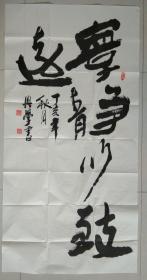 寧静以致
遠
丁亥年
秋月
學書